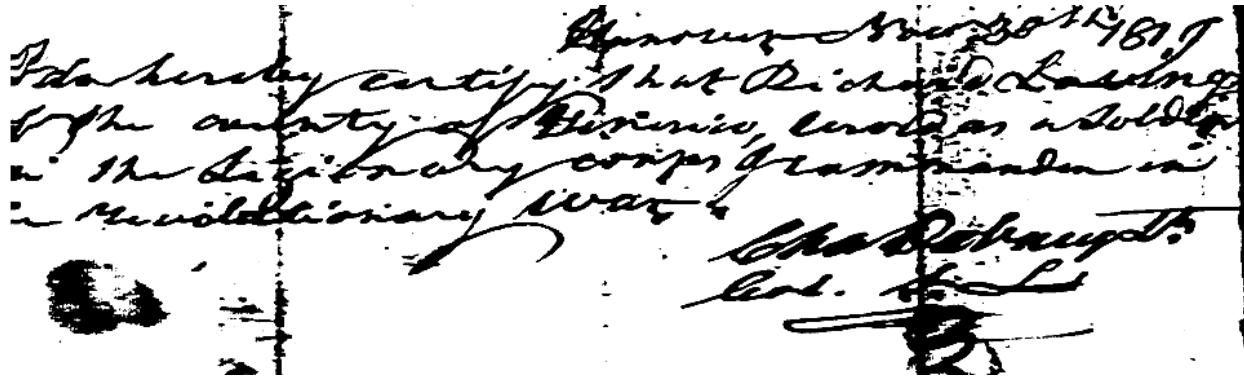 Hanover Nov. 30th 181
I do hereby certify that Richard
of the county of Henrico, served as a Soldier
in the Legionary corps I commanded in
in revolutionary war.
Chs Dabney
Col.